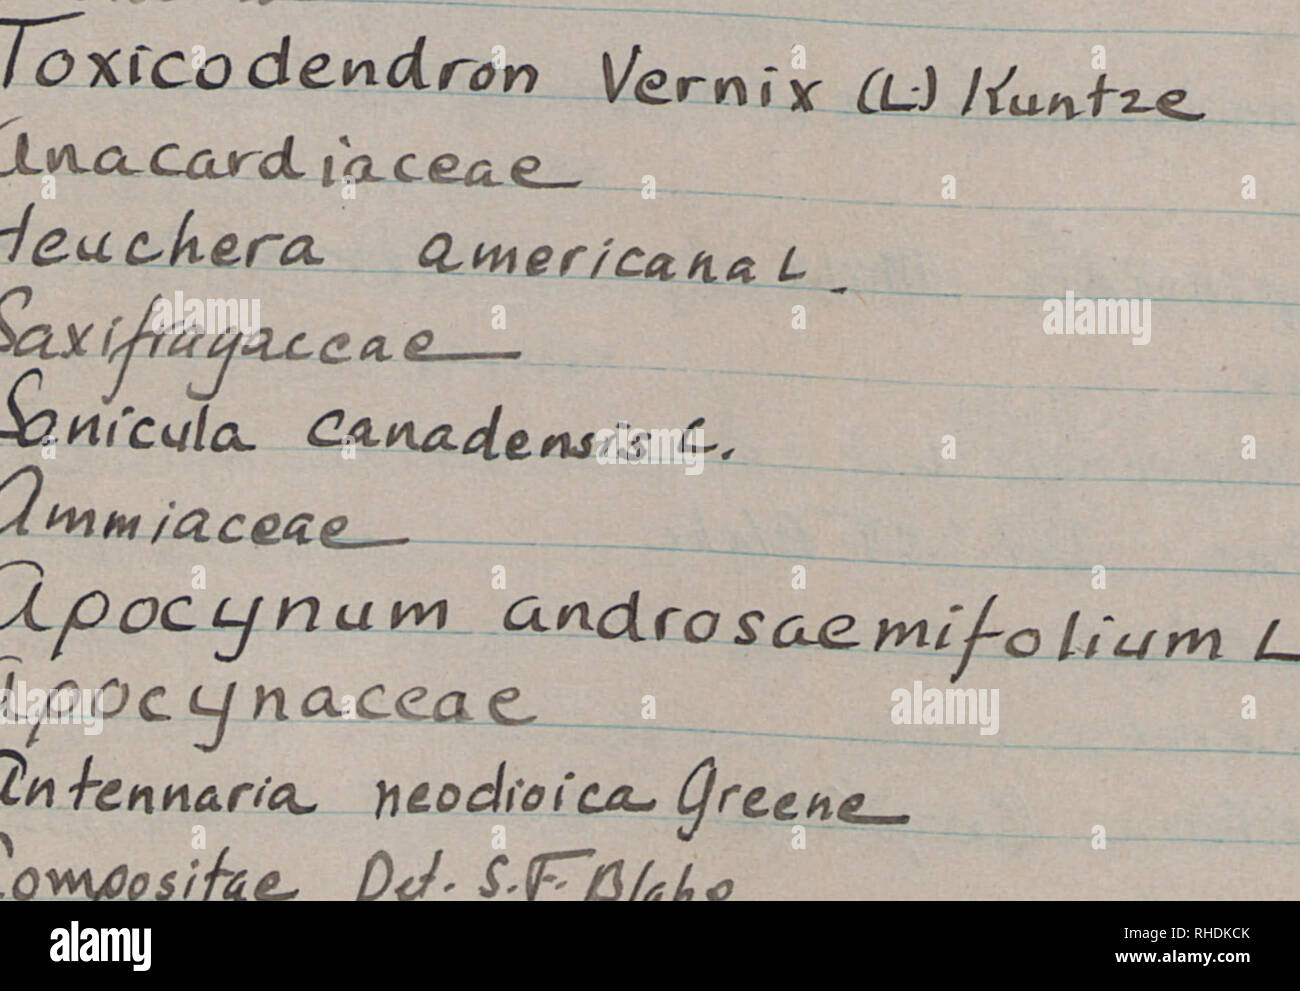 Toxicodendron Vernix (L.) Kuntze
Anacardiaceae
Heuchera americana L.
Saxifragaceae
Sanicula canadensis L.
Ammiaceae
Apocynum androsaemifolium L
Apocynaceae
Antennaria neodioica Greene
Compositae Det. S.F. Blake
alamy
Image ID: RHDKCK
www.alamy.com